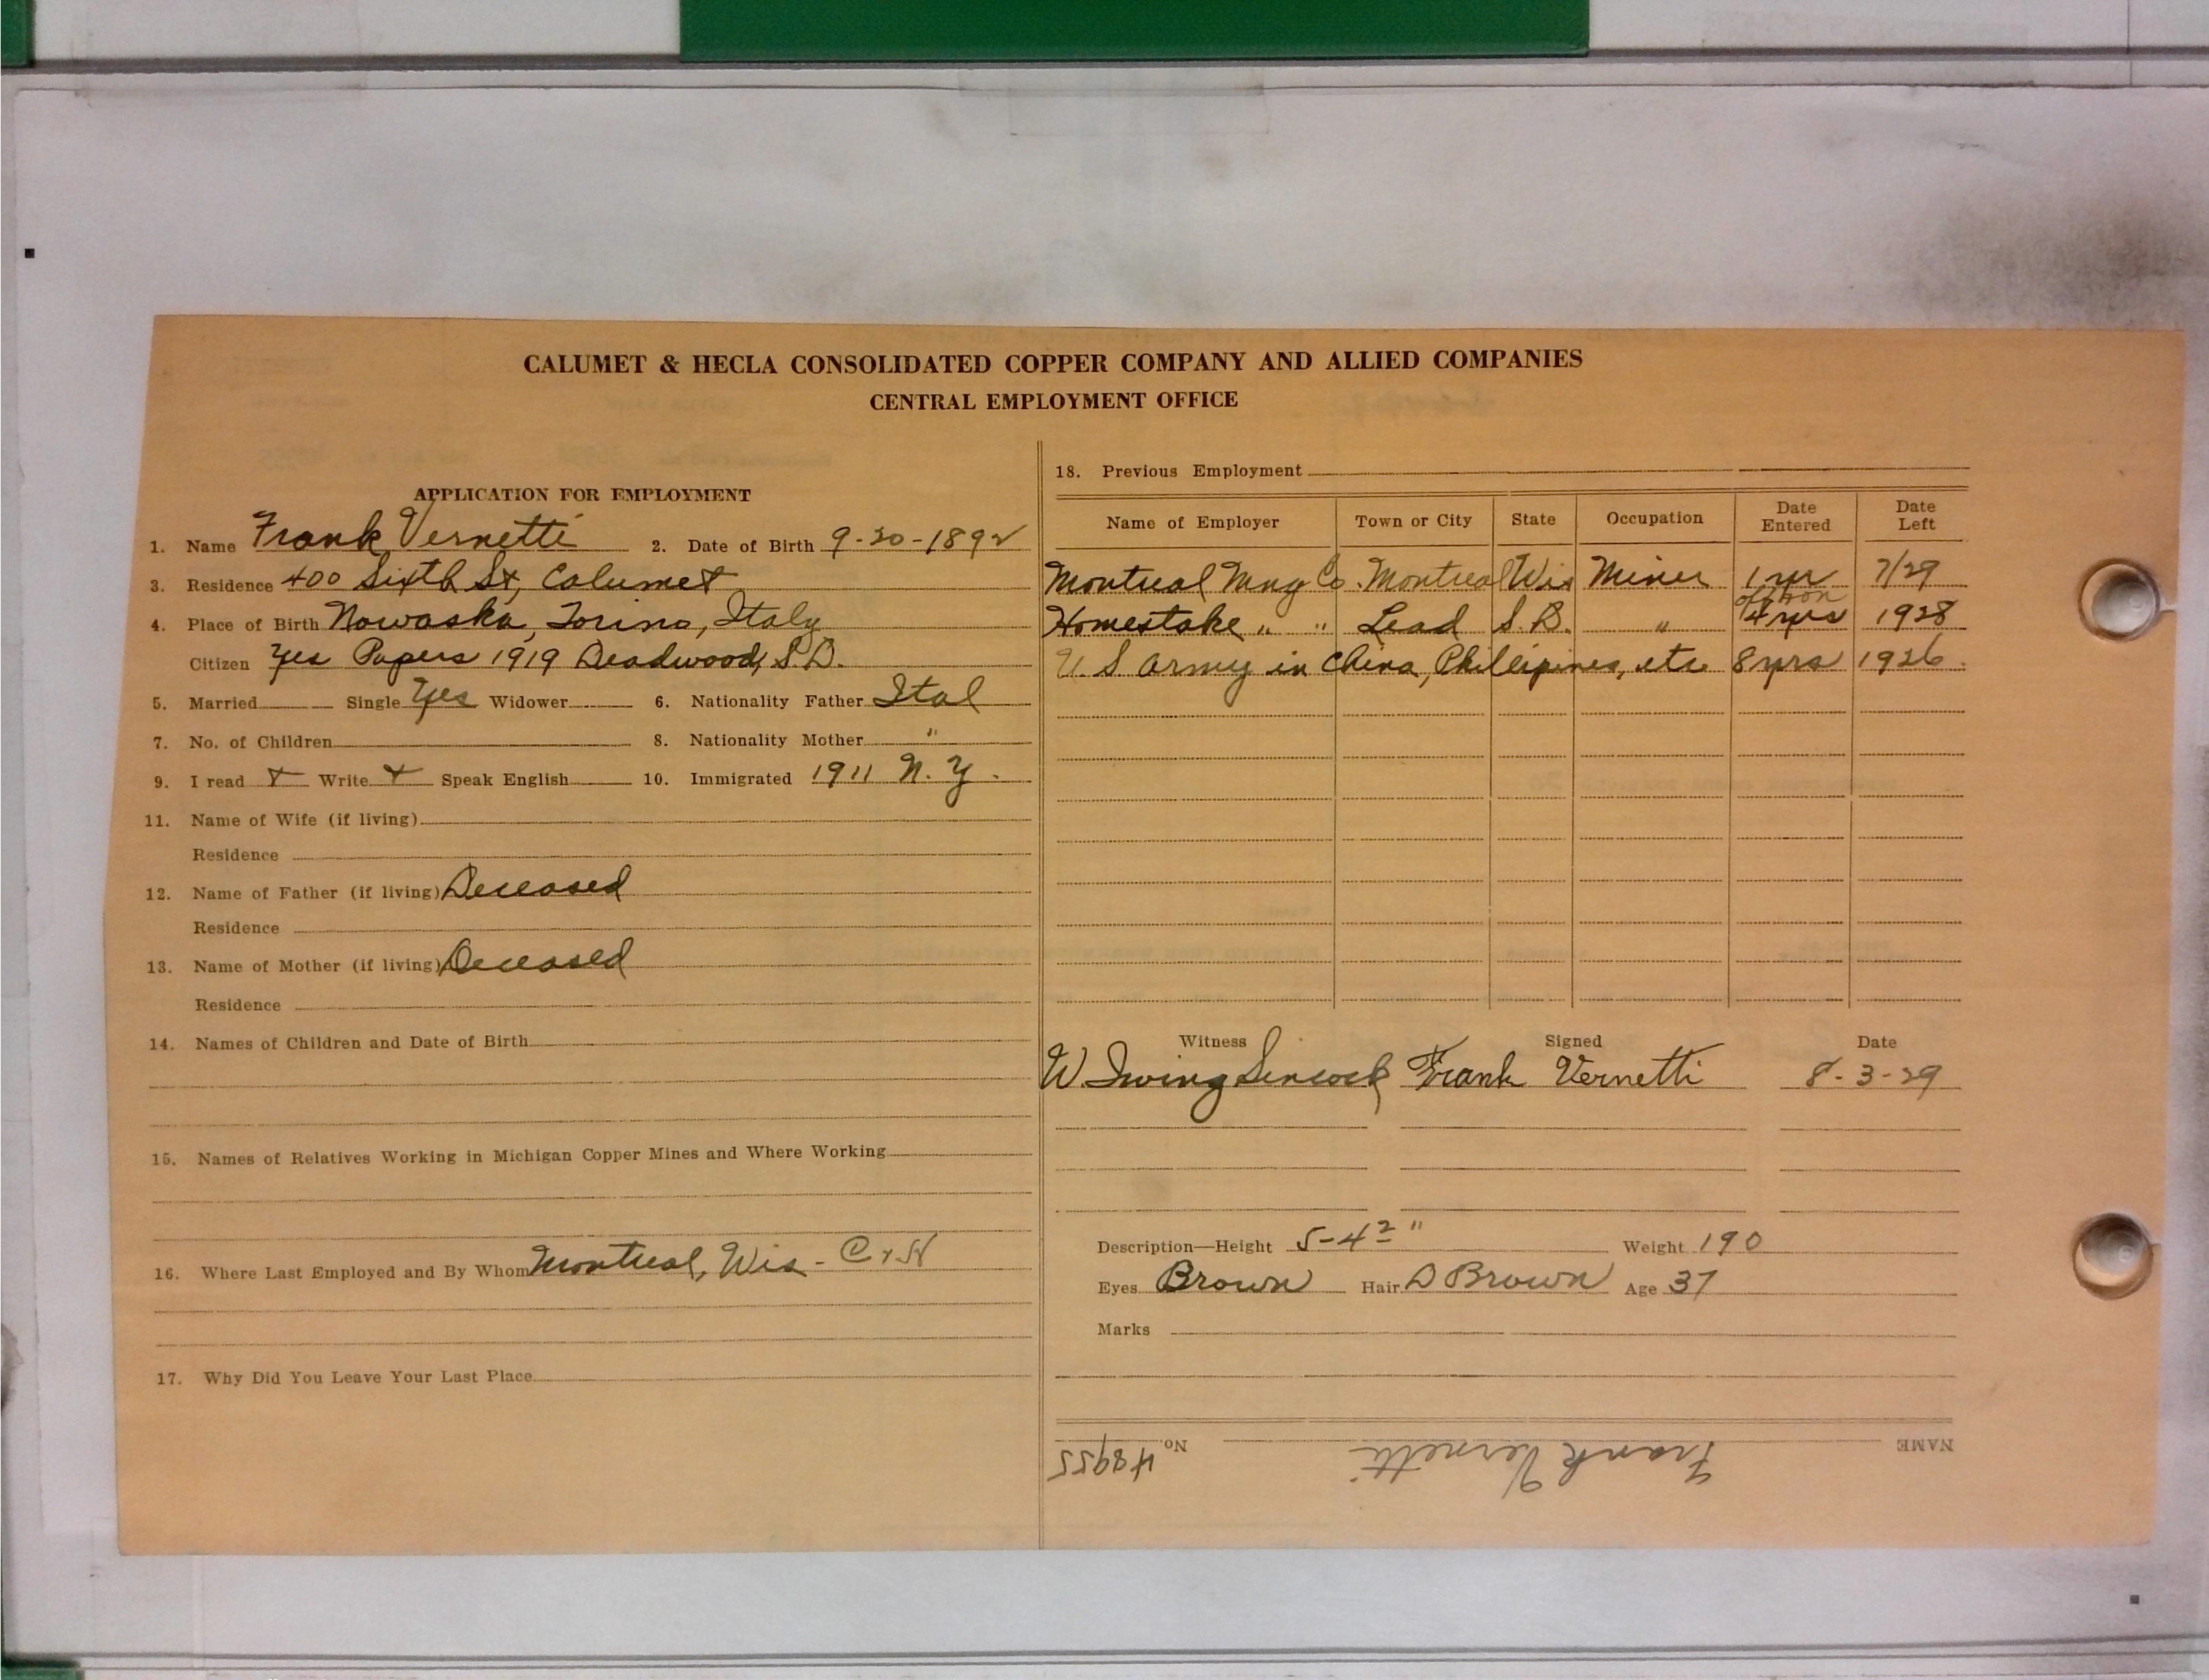 CALUMET & HECLA CONSOLIDATED COPPER COMPANY AND ALLIED COMPANIES
CENTRAL EMPLOYMENT OFFICE
APPLICATION FOR EMPLOYMENT
1. Name Frank Vernetti 2. Date of Birth 9-20-1892
3. Residence 400 Sixth St, Calumet
4. Place of Birth Nowaska, Torino, Italy
Citizen Yes Papers 1919 Deadwood, S.D.
5. Married Single Yes Widower 6. Nationality Father Ital
7. No. of Children 8. Nationality Mother "
9. I read + Write + Speak English 10. Immigrated 1911 N.Y.
11. Name of Wife (if living)
Residence
12. Name of Father (if living) Deceased
Residence
13. Name of Mother (if living) Deceased
Residence
14. Names of Children and Date of Birth
15. Names of Relatives Working in Michigan Copper Mines and Where Working
16. Where Last Employed and By Whom Montreal, Wis - C & H
17. Why Did You Leave Your Last Place
18. Previous Employment
Name of Employer Town or City State Occupation Date Entered Date Left
Montreal Mng Co. Montreal Wis Miner 1 yr 7/29
Homestake " " Lead S.D. " off & on 4 yrs 1928
U.S Army in China, Phillipines, etc 8 yrs 1926
Witness Signed Date
W. Irving Sincock Frank Vernetti 8-3-29
Description—Height 5-4 2 " Weight 190
Eyes Brown Hair D Brown Age 37
Marks
NAME Frank Vernetti No. 48955